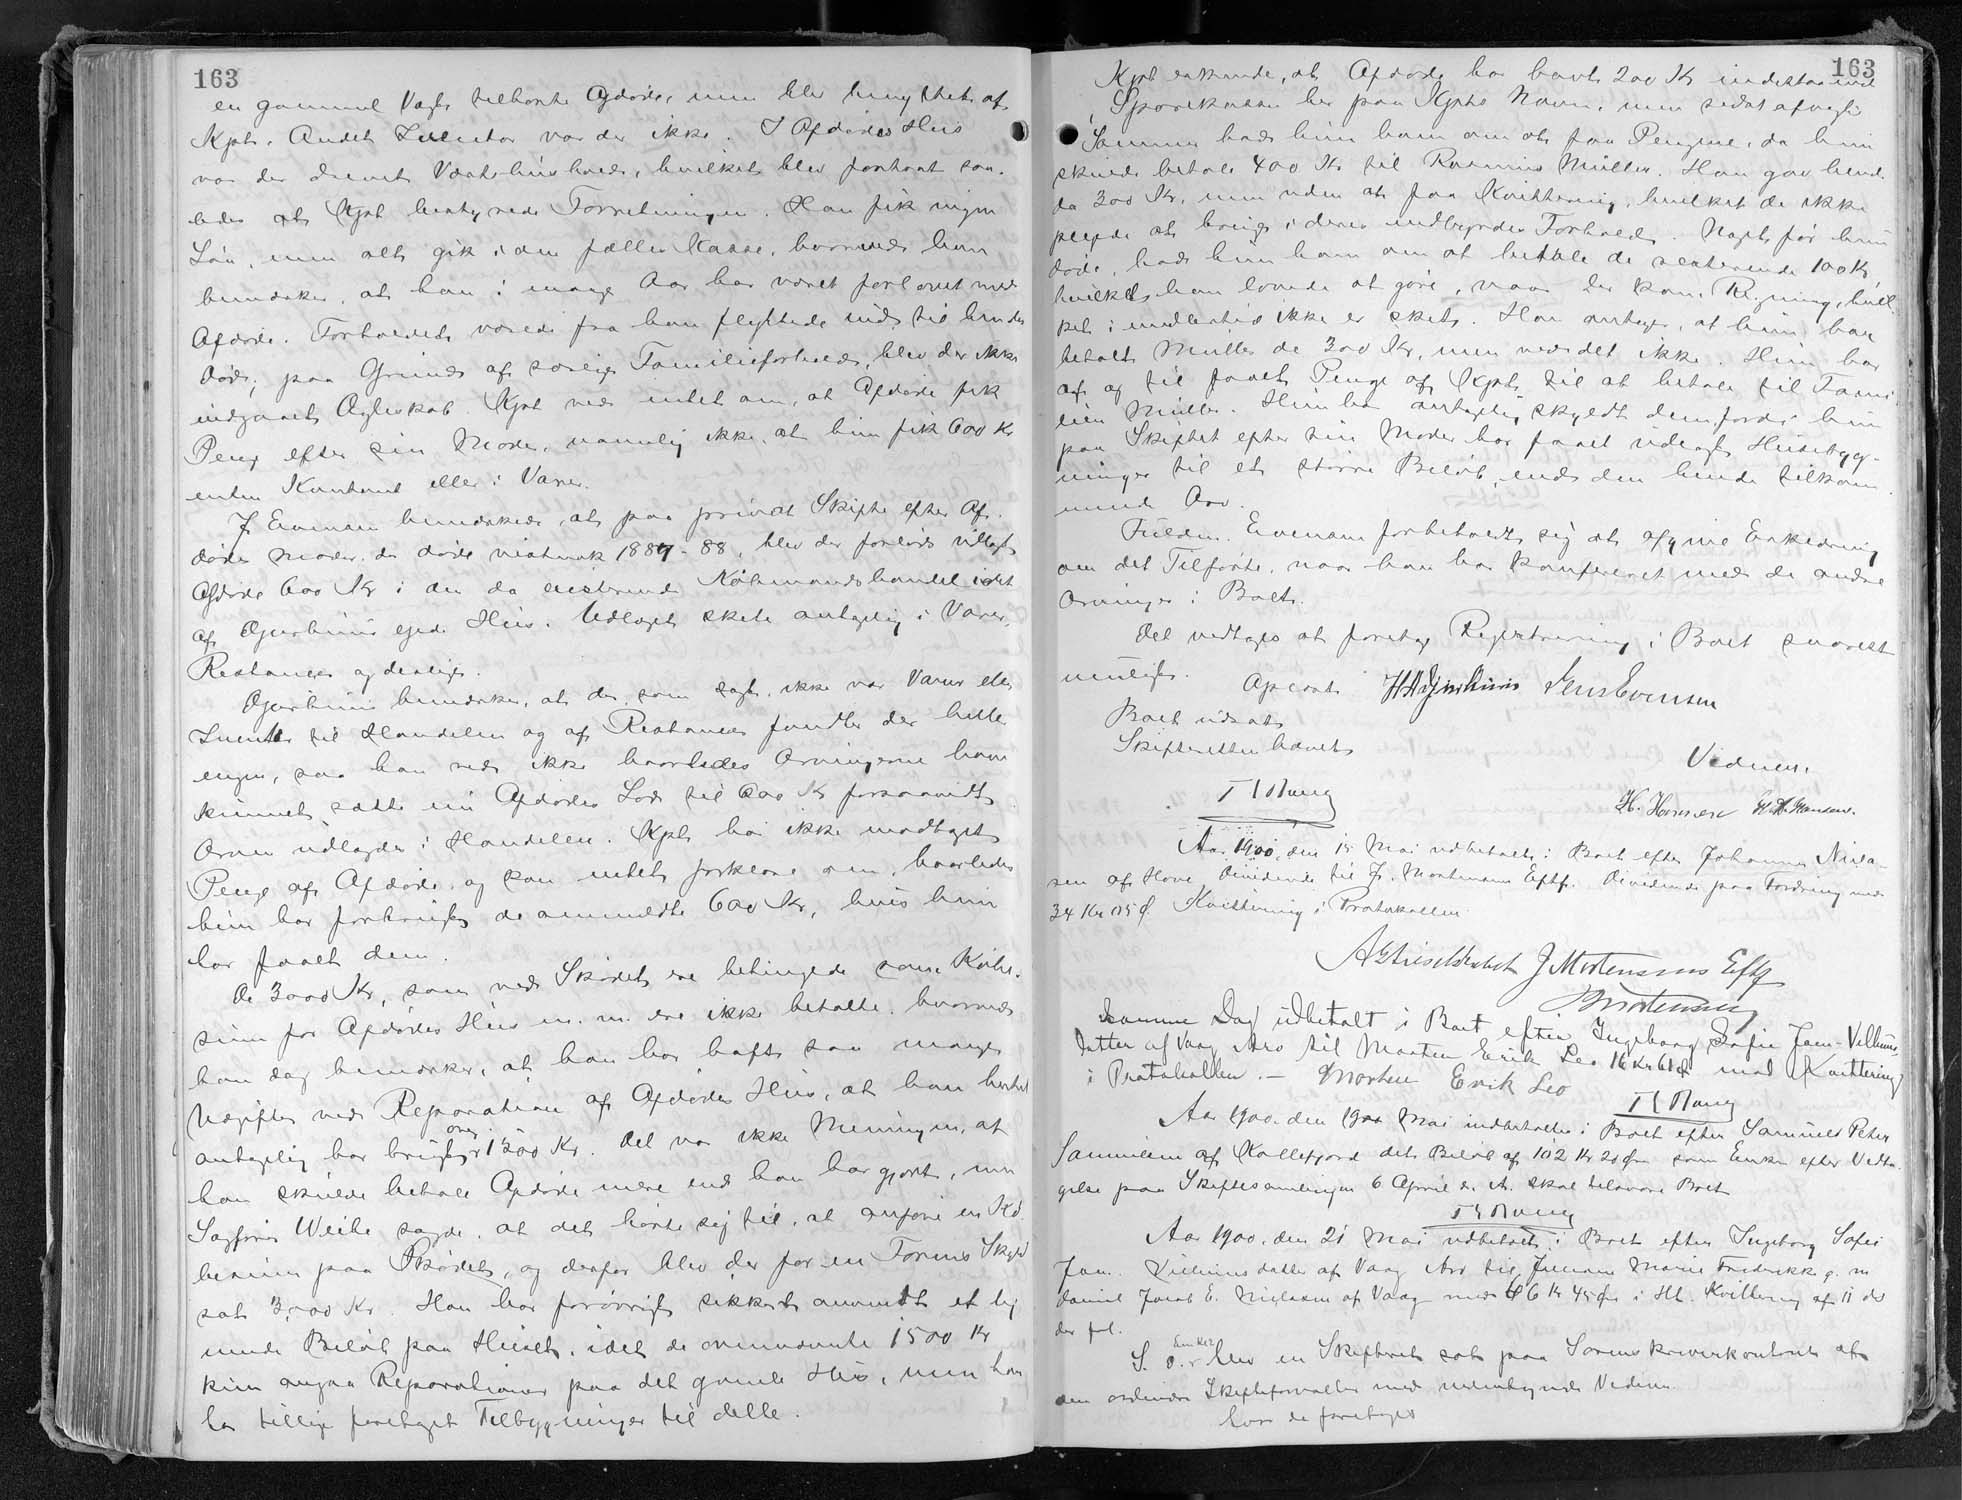 163
en gammel Vægt tilhørte Afdøde, men blev benyttet af
Kpt. Andet Inventar var der ikke. I Afdødes Hus
var der drevet Værtshushold, hvilket blev fortsat saa-
ledes at Kpt bestyrede Forretningen. Han fik ingen
Løn, men alt gik i den fælles Kasse, hvorved han
bemærker, at han i mange Aar har været forlovet med
Afdøde. Forholdet varede fra han flyttede ind til hendes
Død; paa Grund af særlige Familieforhold, blev der ikke
indgaaet Ægteskab. Kpt ved intet om, at Afdøde fik
Penge efter sin Moder, navnlig ikke, at hun fik 600 Kr
enten Kontant eller i Varer.
J. Evensen bemærkede, at paa privat Skifte efter Af-
dødes Moder, der døde 1887-88, blev der forlods udlagt
Afdøde 600 Kr i den da existerende Købmandshandel i det
af Djurhuus ejede Hus. Udlæget skete antagelig i Varer,
Restancer og deslige.
Djurhuus bemærker, at der som sagt ikke var Varer eller
Inventar til Handelen og af Restancer fandtes der heller
ingen, saa han ved ikke hvorledes Arvingerne have
kunnet sætte Afdødes Lod til 600 Kr forsaavidt
Arven udlagdes i Handelen. Kpt har ikke modtaget
Penge af Afdøde, og kan intet forklare om, hvorledes
hun har forbrugt de anmeldte 600 Kr, hvis hun
har faaet dem.
De 3000 Kr, som ved Skødet ere betingede som Købe-
sum for Afdødes Hus m. m. ere ikke betalte, hvorved
han dog bemærker, at han har haft saa mange
Udgifter ved Reparation af Afdødes Hus, at han hertil
antagelig har brugt over 1500 Kr. Det var ikke Meningen, at
han skulde betale Afdøde mere end han har gjort, men
Sagfører Weihe sagde, at det hørte sig til, at anføre en Kø-
besum paa Skødet, og derfor blev der for en Forms Skyld
sat 3,000 Kr. Han har forøvrigt sikkert anvendt et lig-
nende Beløb paa Huset, idet de ovennævnte 1500 Kr
kun angaa Reparationer paa det gamle Hus, men han
har tillige foretaget Tilbygninger til dette.
163
Kpt erkendte, at Afdøde har havt 200 Kr indestaaende
Sparekassen her paa Kpts Navn, men sidst afvigte
Sommer bad hun ham om at faa Pengene, da hun
skulde betale 400 Kr til Rasmus Müller. Han gav hende
da 300 Kr, men uden at faa Kvittering, hvilket de ikke
plejede at bruge i deres indbyrdes Forhold. Nogt før hun
døde, bad hun ham om at betale de resterende 100 Kr,
hvilket han lovede at gøre, naar der kom Regning, hvil-
ket imidlertid ikke er sket. Han antager, at hun har
betalt Müller de 300 Kr, men ved det ikke. Hun har
af og til faaet Penge af Kpt til at betale til Fami-
lien Müller. Hun har antagelig skyldt dem, fordi hun
paa Skiftet efter sin Moder har faaet udlagt Husebyg-
ninger til et større Beløb, end den hende tilkom-
mende Arv.
Fuldm. Evensen forbeholdt sig at afgive Erklæring
om det Tilførte, naar han har konfereret med de andre
Arvinger i Boet.
Det vedtages at foretage Registrering i Boet snarest
muligt.
Oplæst HADjurhuus Jens Evensen
Boet udsat.
Skifteretten hævet.
Vidner.
H. Hansen H. A. Hansen.
Aar 1900, den 15 Mai udbetalt i Boet efter Johannes Niela-
sen af Hove Dividende til J. Mortensens Eftf. Dividende paa Fordring med
34 Kr 05 Ø. Kvittering i Protokollen.
Aktieselskabet J Mortensens Eftf
Samme Dag udbetalt i Boet efter Ingeborg Sofie Jam-Vilhums-
datter af Vaag Arv til Morten Erik Leo 16 Kr 61 Ø mod Kvittering
i Protokollen. — Morten Erik Leo
Aar 1900, den Mai indbetaltes i Boet efter Samuel Peter
Samuelsen af Kollefjord det Beløb af 102 Kr 20 Øre som Enken efter Vedta-
gelse paa Skiftesamlingen 6 April d. A. skal tilsvare Boet
Aar 1900, den 21 Mai udbetalt i Boet efter Ingeborg Sofie
Jam. Vilhumsdatter af Vaag Arv til Marie Fredrikke g. m
Daniel Jacob E. Nielsen af Vaag med 66 Kr 45 Øre i Hl. Kvittering af 11 ds
der fol.
S. D. blev en Skifteret sat paa Sorenskriverkontoret af
den ordinære Skifteforvalter med undertegnede Vidner
hvor da foretoges